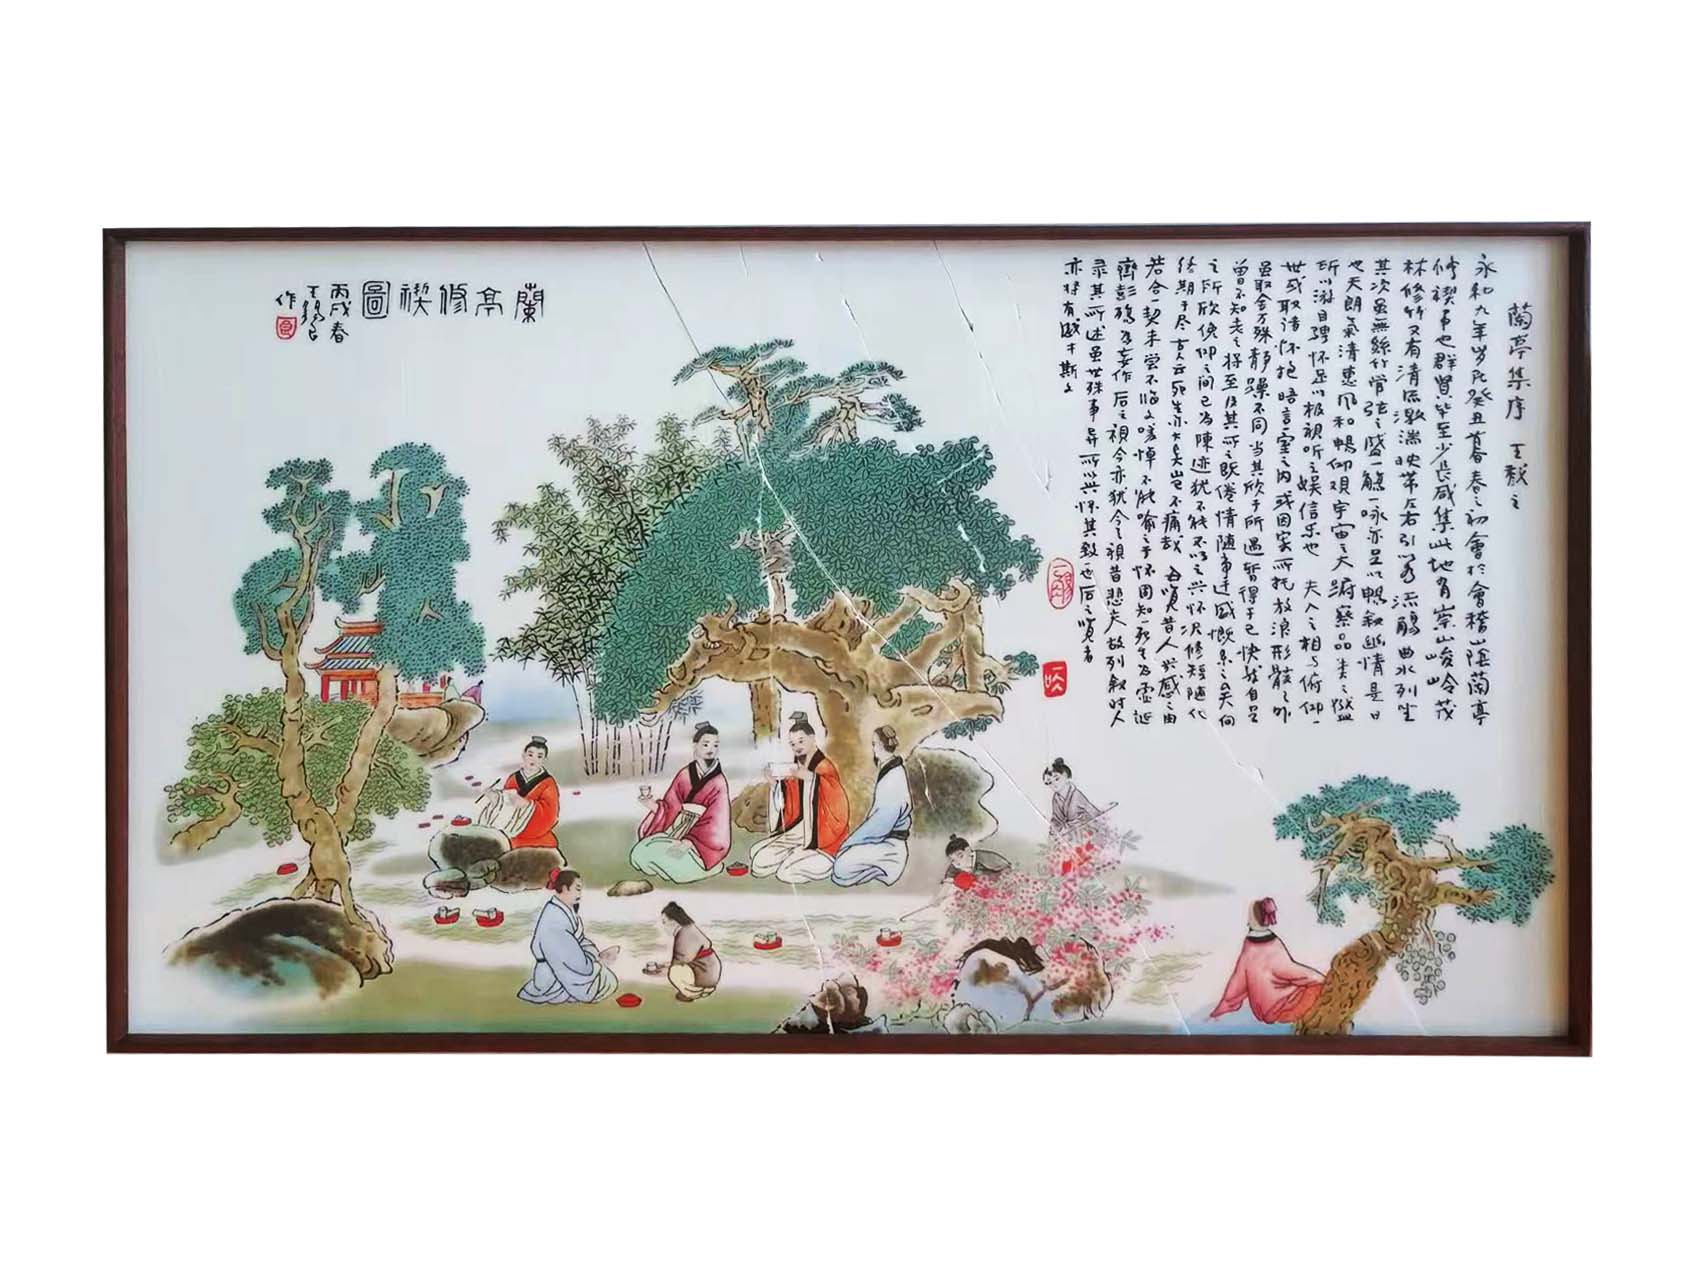 蘭亭集序 王羲之
永和九年岁在癸丑暮春之初會於會稽山陰蘭亭
修禊事也群贤毕至少長咸集此地有崇山峻岭茂
林修竹又有清流激湍映带左右引以为流觴曲水列坐
其次虽無絲竹管弦之盛一觴一咏亦足以暢叙幽情是日
也天朗氣清惠风和暢仰观宇宙之大俯察品类之盛
所以游目骋怀足以极視听之娱信乐也 夫人之相与俯仰一
世或取诸怀抱晤言室之内或因寄所托放浪形骸之外
虽取舍万殊静躁不同当其欣于所遇暂得于己快然自足
曾不知老之将至及其所之既倦情随事迁感慨系之矣向
之所欣俛仰之间已为陳迹犹不能不以之兴怀况修短随化
终期于尽古人云死生亦大矣岂不痛哉 每览昔人兴感之由
若合一契未尝不临文嗟悼不能喻之于怀固知一死生为虚诞
齊彭殇为妄作后之視今亦犹今之視昔悲夫故列叙时人
录其所述虽世殊事异所以兴怀其致一也后之览者
亦将有感于斯文
蘭亭修禊圖
丙戌春
王锡良
作